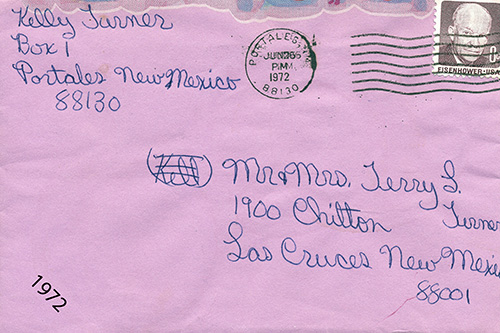 Kelly Turner
Box 1
Portales New Mexico
88130
PORTALES
JUN 26
PM
1972
88130
EISENHOWER·USA
(Kell)
Mr & Mrs. Terry L.
Turner
1900 Chilton
Las Cruces New Mexi
88001
1972